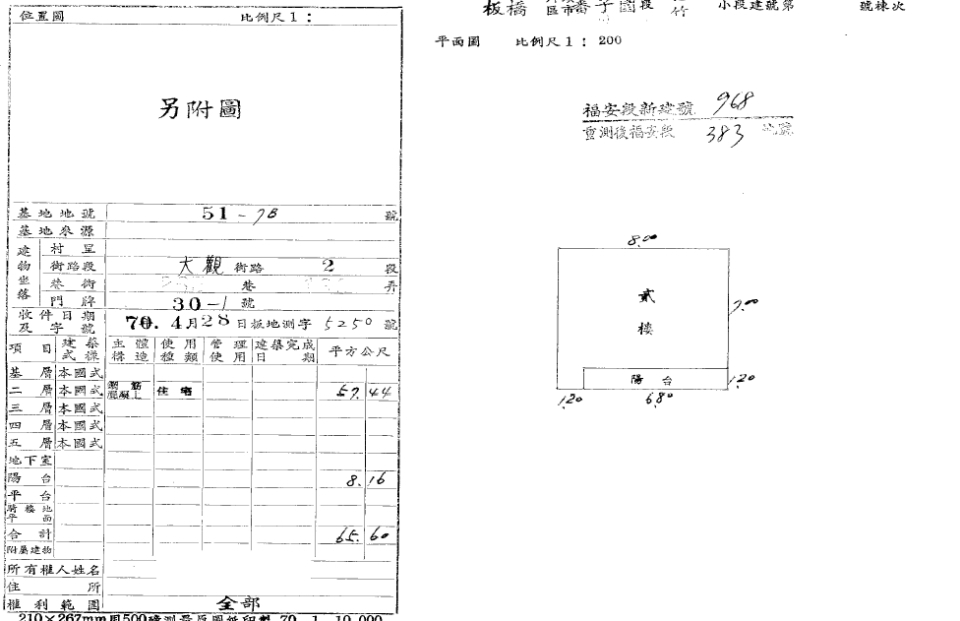 位置圖 比例尺1:
另附圖
基地地號 51-7B 號
基地來源
建物坐落
村里
街路段 大觀 街路 2 段
巷衖 巷 弄
門牌 30-1 號
收件日期及字號 70.4月28日板地測字5250號
項目 建築式樣 主體構造 使用種類 管理使用 建築完成日期 平方公尺
基層 本國式
二層 本國式 鋼筋混凝土 住宅 57.44
三層 本國式
四層 本國式
五層 本國式
地下室
陽台 8.16
平台
騎樓地平面
合計 65.60
附屬建物
所有權人姓名
住所
權利範圍 全部
板橋 區市 番子園段 竹 小段建號第 號棟次
平面圖 比例尺1:200
福安段新建號 968
重測後福安段 383 地號
8.00
貳樓
7.00
陽台
1.20
1.20 6.80